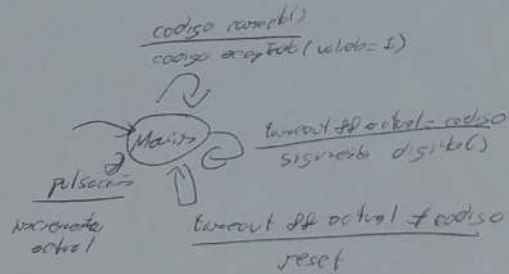 codigo correcto()
codigo aceptado (valido = 1)
timeout && actual = codigo
siguiente digito()
pulsacion
incrementa
actual
timeout && actual ≠ codigo
reset